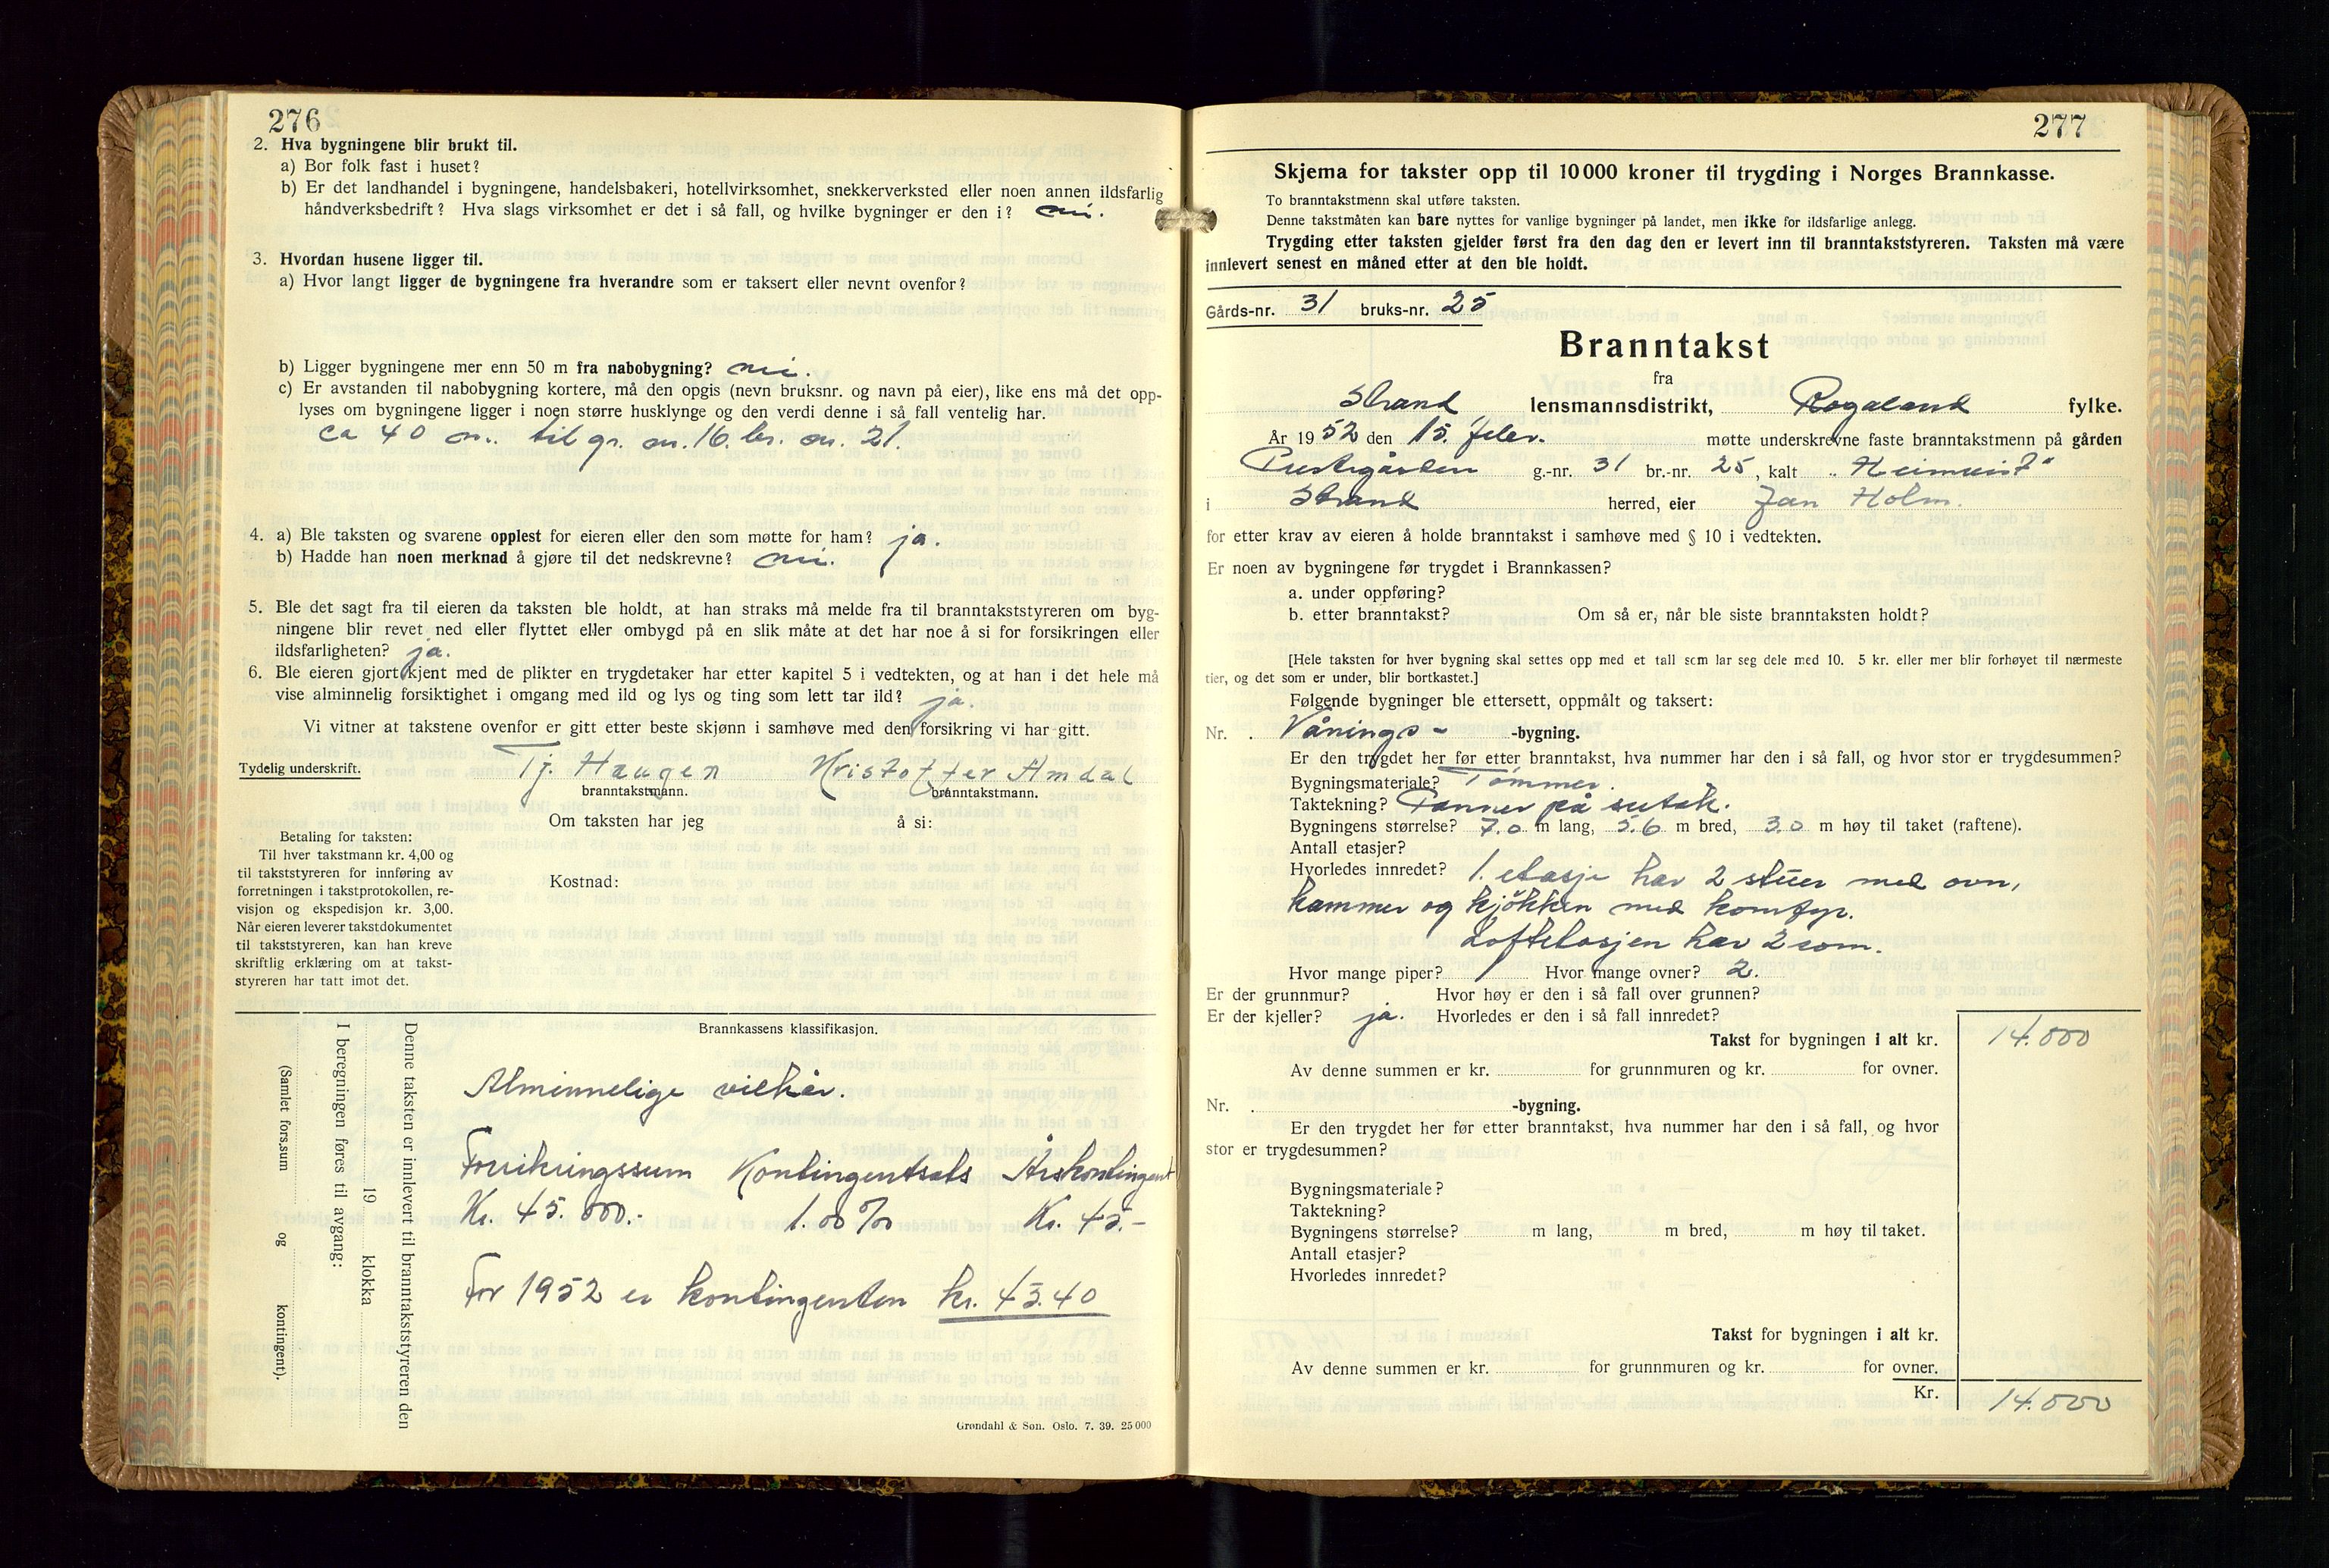 276
2. Hva bygningene blir brukt til.
a) Bor folk fast i huset?
b) Er det landhandel i bygningene, handelsbakeri, hotellvirksomhet, snekkerverksted eller noen annen ildsfarlig
håndverksbedrift? Hva slags virksomhet er det i så fall, og hvilke bygninger er den i? nei.
3. Hvordan husene ligger til.
a) Hvor langt ligger de bygningene fra hverandre som er taksert eller nevnt ovenfor?
b) Ligger bygningene mer enn 50 m fra nabobygning? nei.
c) Er avstanden til nabobygning kortere, må den opgis (nevn bruksnr. og navn på eier), like ens må det opp-
lyses om bygningene ligger i noen større husklynge og den verdi denne i så fall ventelig har.
ca 40 m. til gr. nr. 16 br. nr. 21
4. a) Ble taksten og svarene opplest for eieren eller den som møtte for ham? ja.
b) Hadde han noen merknad å gjøre til det nedskrevne? nei.
5. Ble det sagt fra til eieren da taksten ble holdt, at han straks må melde fra til branntakststyreren om byg-
ningene blir revet ned eller flyttet eller ombygd på en slik måte at det har noe å si for forsikringen eller
ildsfarligheten? ja.
6. Ble eieren gjort kjent med de plikter en trygdetaker har etter kapitel 5 i vedtekten, og at han i det hele må
vise alminnelig forsiktighet i omgang med ild og lys og ting som lett tar ild? ja.
Vi vitner at takstene ovenfor er gitt etter beste skjønn i samhøve med den forsikring vi har gitt.
Tydelig underskrift. Tj. Haugen Kristoffer Amdal
branntakstmann. branntakstmann.
Om taksten har jeg å si:
Betaling for taksten:
Til hver takstmann kr. 4,00 og
til takststyreren for innføring av
forretningen i takstprotokollen, re-
visjon og ekspedisjon kr. 3,00.
Når eieren leverer takstdokumentet
til takststyreren, kan han kreve
skriftlig erklæring om at takst-
styreren har tatt imot det.
Kostnad:
Denne taksten er innlevert til branntakststyreren den
19 klokka
I beregningen føres til avgang:
(Samlet fors.sum og kontingent).
Brannkassens klassifikasjon.
Alminnelige vilkår.
Forsikringssum Kontingentsats Årskontingent
Kr. 45.000.- 1.00 ‰ Kr. 45.-
For 1952 er kontingenten kr. 43.40
Grøndahl & Søn. Oslo. 7. 39. 25 000
277
Skjema for takster opp til 10 000 kroner til trygding i Norges Brannkasse.
To branntakstmenn skal utføre taksten.
Denne takstmåten kan bare nyttes for vanlige bygninger på landet, men ikke for ildsfarlige anlegg.
Trygding etter taksten gjelder først fra den dag den er levert inn til branntakststyreren. Taksten må være
innlevert senest en måned etter at den ble holdt.
Gårds-nr. 31 bruks-nr. 25
Branntakst
fra
Strand lensmannsdistrikt, Rogaland fylke.
År 1952 den 15. febr. møtte underskrevne faste branntakstmenn på gården
Prestegården g.-nr. 31 br.-nr. 25, kalt "Heimvist"
i Strand herred, eier Jan Holm.
for etter krav av eieren å holde branntakst i samhøve med § 10 i vedtekten.
Er noen av bygningene før trygdet i Brannkassen?
a. under oppføring?
b. etter branntakst? Om så er, når ble siste branntaksten holdt?
[Hele taksten for hver bygning skal settes opp med et tall som lar seg dele med 10. 5 kr. eller mer blir forhøyet til nærmeste
tier, og det som er under, blir bortkastet.]
Følgende bygninger ble ettersett, oppmålt og taksert:
Nr. . Vånings- -bygning.
Er den trygdet her før etter branntakst, hva nummer har den i så fall, og hvor stor er trygdesummen?
Bygningsmateriale? Tømmer.
Taktekning? Panner på sutak.
Bygningens størrelse? 7.0 m lang, 5.6 m bred, 3.0 m høy til taket (raftene).
Antall etasjer?
Hvorledes innredet? 1. etasje har 2 stuer med ovn,
kammer og kjøkken med komfyr.
Loftetasjen har 2 rom.
Hvor mange piper? 1 Hvor mange ovner? 2.
Er der grunnmur? Hvor høy er den i så fall over grunnen?
Er der kjeller? ja. Hvorledes er den i så fall innredet?
Takst for bygningen i alt kr. 14.000
Av denne summen er kr. for grunnmuren og kr. for ovner.
Nr. . -bygning.
Er den trygdet her før etter branntakst, hva nummer har den i så fall, og hvor
stor er trygdesummen?
Bygningsmateriale?
Taktekning?
Bygningens størrelse? m lang, m bred, m høy til taket.
Antall etasjer?
Hvorledes innredet?
Takst for bygningen i alt kr.
Av denne summen er kr. for grunnmuren og kr. for ovner.
Kr. 14.000